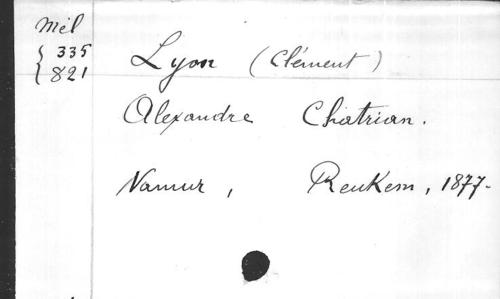 Mél
335
821
Lyon (Clément)
Alexandre Chatrian.
Namur, Renkem, 1877-